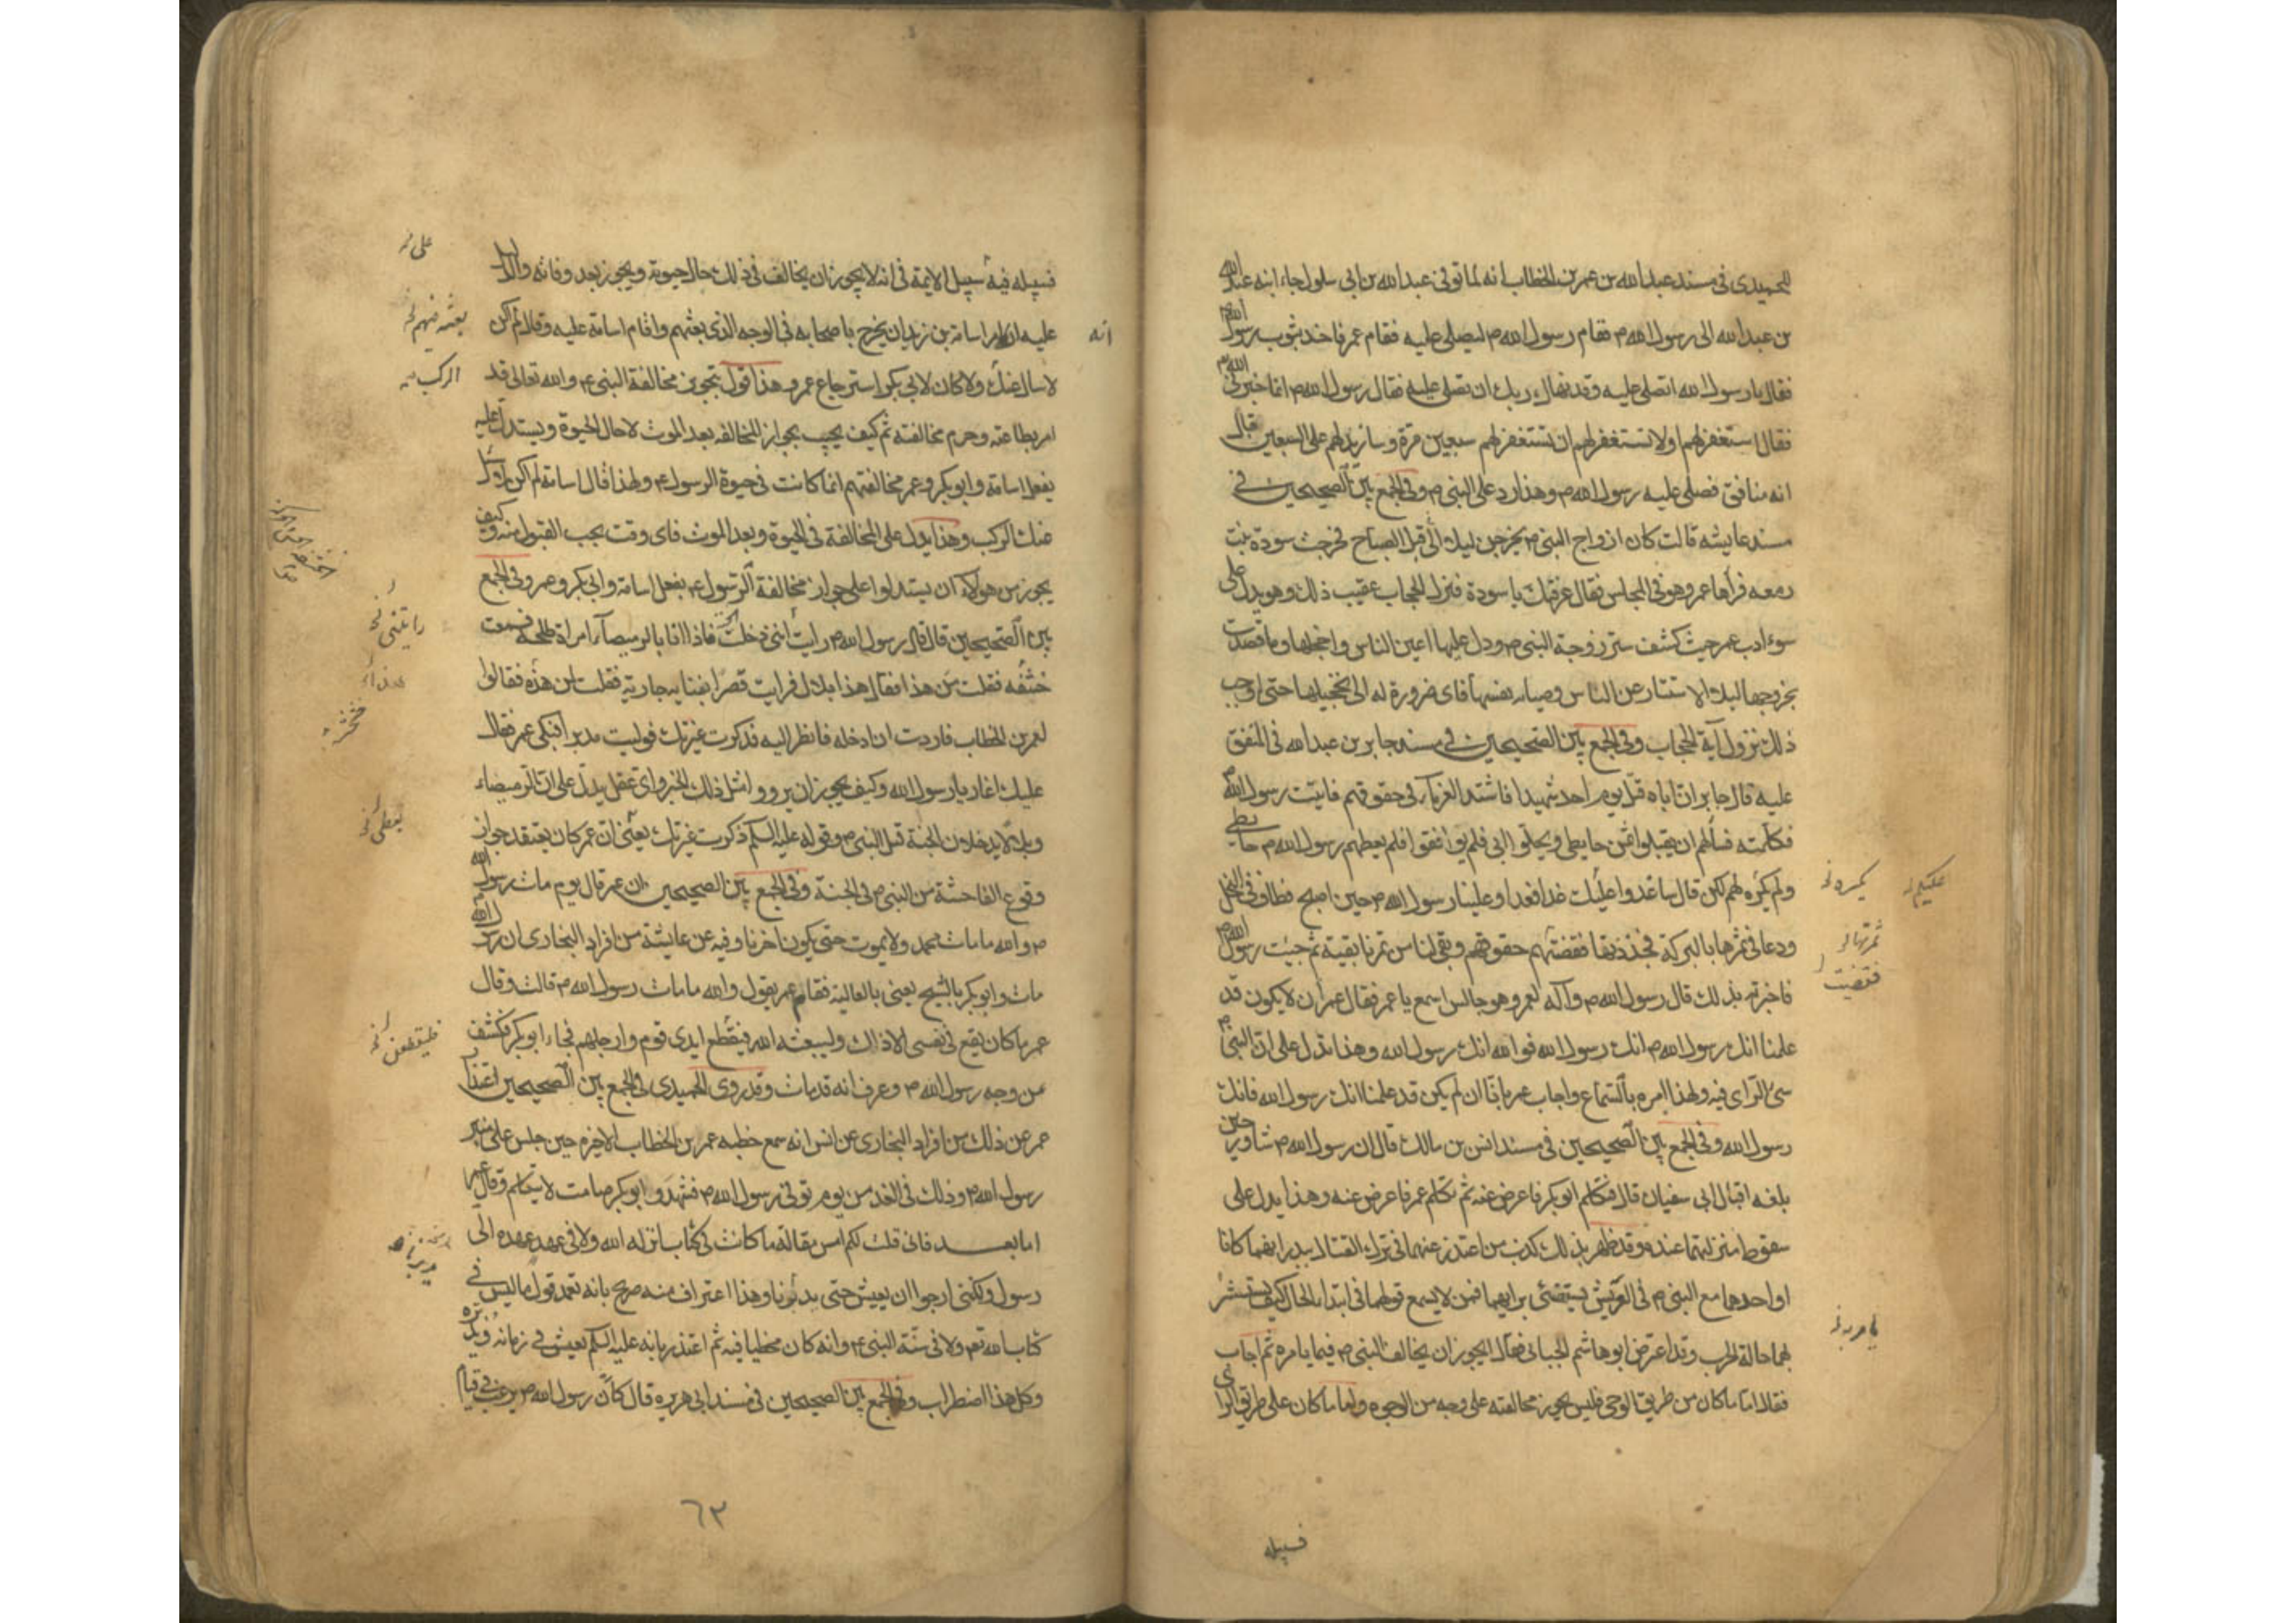 الحميدى فى مسند عبدالله بن عمر بن الخطاب انه لما توفى عبدالله بن ابى سلول جاء ابنه عبد الله
بن عبدالله الى رسول الله ص فقام رسول الله ص ليصلى عليه فقام عمر فاخذ بثوب رسول الله ص
فقال يا رسول الله اتصلى عليه وقد نهاك ربك ان تصلى عليه فقال رسول الله ص انما خيرنى الله
فقال استغفر لهم اولا تستغفر لهم ان تستغفر لهم سبعين مرة وسازيد لهم على السبعين قال
انه منافق فصلى عليه رسول الله ص وهذا رد على النبى ص وفى الجمع بين الصحيحين فى
مسند عايشه قالت كان ازواج النبى ص يخرجن ليلا الى قبل الصباح فخرجت سودة بنت
زمعه فرآها عمر وهو فى المجلس فقال عرفتك يا سودة فنزل الحجاب عقيب ذلك وهو يدل على
سوء ادب عمر حيث كشف ستر زوجة النبى ص ودل عليها اعين الناس واخجلها وما قصدت
بخروجها ليلا الا استتار عن الناس وصيانه نفسها فاى ضرورة له الى تخجيلها حتى اوجب
ذلك نزول آية الحجاب وفى الجمع بين الصحيحين فى مسند جابر بن عبدالله فى المتفق
عليه قال جابر ان اباه قتل يوم احد شهيدا فاشتد الغرماء فى حقوقهم فاتيت رسول الله ص
فكلمته فسألهم ان يقبلوا ثمن حايطى ويحلوا ابى فلم يوافقوا فلم يعطهم رسول الله ص حايطى
ولم يكره لهم لكن قال ساغدوا عليك غدا فغدا علينا رسول الله ص حين اصبح فطاف فى النخل
ودعا فى ثمرها بالبركة فجذذتها فقضتهم حقوقهم وبقى لنا من تمرنا بقية ثم جئت رسول الله ص
فاخبرته بذلك قال رسول الله ص وآله لعمر وهو جالس اسمع يا عمر فقال عمر ان لا يكون قد
علمنا انك رسول الله ص انك رسول الله فوالله انك رسول الله وهذا تدل على ان النبى ص
سئ الراى فيه ولهذا امره بالسماع واجاب عمر بانا ان لم يكن قد علمنا انك رسول الله فانك
رسول الله وفى الجمع بين الصحيحين فى مسند انس بن مالك قال ان رسول الله ص شاور حين
بلغه اقبال ابى سفيان قال فتكلم ابو بكر فاعرض عنه ثم تكلم عمر فاعرض عنه وهذا يدل على
سقوط منزلتهما عنده وقد ظهر بذلك كذب من اعتذر عنهما فى ترك القتال ببدر انهما كانا
او احدهما مع النبى ص فى العريش يستضئ برايهما فمن لا يسمع قولهما فى ابتداء الحال كيف يستشر
بهما حالة الحرب وقد اعترض ابو هاشم الجبائى فقال ايجوز ان يخالف النبى ص فيما يامره ثم اجاب
فقال اما ما كان من طريق الوحى فليس يجوز مخالفته على وجه من الوجوه واما ما كان على طريق الراى
يكره خ
ثمرتها خ
فقضيت
يامر به خ
فسبيله
فسبيله فيه سبيل الايمة فى انه لا يجوز ان يخالف فى ذلك حال حيوته ويجوز بعد وفاته والدليل
عليه انه امر اسامة بن زيد ان يخرج باصحابه فى الوجه الذى بعثهم واقام اسامة عليه وقال لم اكن
لاسال عنك ولا كان لابى بكر استرجاع عمر وهذا قول بتجويز مخالفة النبى ع والله تعالى قد
امر بطاعته وحرم مخالفته ثم كيف يجيب بجواز المخالفه بعد الموت لا حال الحيوة ويستدل عليه
بفعل اسامة وابو بكر وعمر مخالفتهم انما كانت فى حيوة الرسول ع ولهذا قال اسامة لم اكن لاسال
عنك الركب وهذا يدل على المخالفة فى الحيوة وبعد الموت فاى وقت يجب القبول منه وكيف
يجوز من هولاء ان يستدلوا على جواز مخالفة الرسول ع بفعل اسامة وابى بكر وعمر وفى الجمع
بين الصحيحين قال قال رسول الله ص رايت اننى دخلت الجنة فاذا انا بالرميصآء امراة طلحه فسمعت
خشفه فقلت من هذا فقال هذا بلال فرايت قصرا بفنايه جارية فقلت لمن هذه فقالوا
لعمر بن الخطاب فاردت ان ادخله فانظر اليه فذكرت غيرتك فوليت مدبرا فبكى عمر فقال
عليك اغار يا رسول الله وكيف يجوز ان يرووا مثل ذلك الخبر واى عقل يدل على ان الرميصاء
وبلالا يدخلون الجنة قبل النبى ص وقوله عليه السلم ذكرت غيرتك يعنى ان عمر كان يعتقد جواز
وقوع الفاحشة من النبى ص فى الجنة وفى الجمع بين الصحيحين ان عمر قال يوم مات رسول الله
ص والله ما مات محمد ولا يموت حتى يكون آخرنا وفيه عن عايشة من افراد البخارى ان رسول الله
مات وابو بكر بالشيح يعنى بالعالية فقام عمر يقول والله ما مات رسول الله ص قالت وقال
عمر ما كان يقع فى نفسى الا ذاك وليبعثه الله فيقطع ايدى قوم وارجلهم فجاء ابو بكر فكشف
عن وجه رسول الله ص وعرف انه قد مات وقد روى الحميدى فى الجمع بين الصحيحين اعتذار
عمر عن ذلك من افراد البخارى عن انس انه سمع خطبه عمر بن الخطاب الاخيره حين جلس على منبر
رسول الله ص وذلك فى الغد من يوم توفى رسول الله ص فتشهد وابو بكر صامت لا يتكلم وقال عمر
اما بعد فانى قلت لكم امس مقالة ما كانت فى كتاب انزله الله ولا فى عهد عهده الى
رسول ولكننى ارجوا ان يعيش حتى يدبرنا وهذا اعتراف منه صريح بانه تعمد قول ما ليس فى
كتاب الله تع ولا فى سنة النبى ع وانه كان مخطيا فيه ثم اعتذر بانه عليه السلم يعيش فى زمانه ويدبره
وكل هذا اضطراب وفى الجمع بين الصحيحين فى مسند ابى هريره قال كان رسول الله ص يرغب فى قيام
انه
على خ
الركب
رايتنى خ
يعطى خ
فليقطعن خ
٦٣